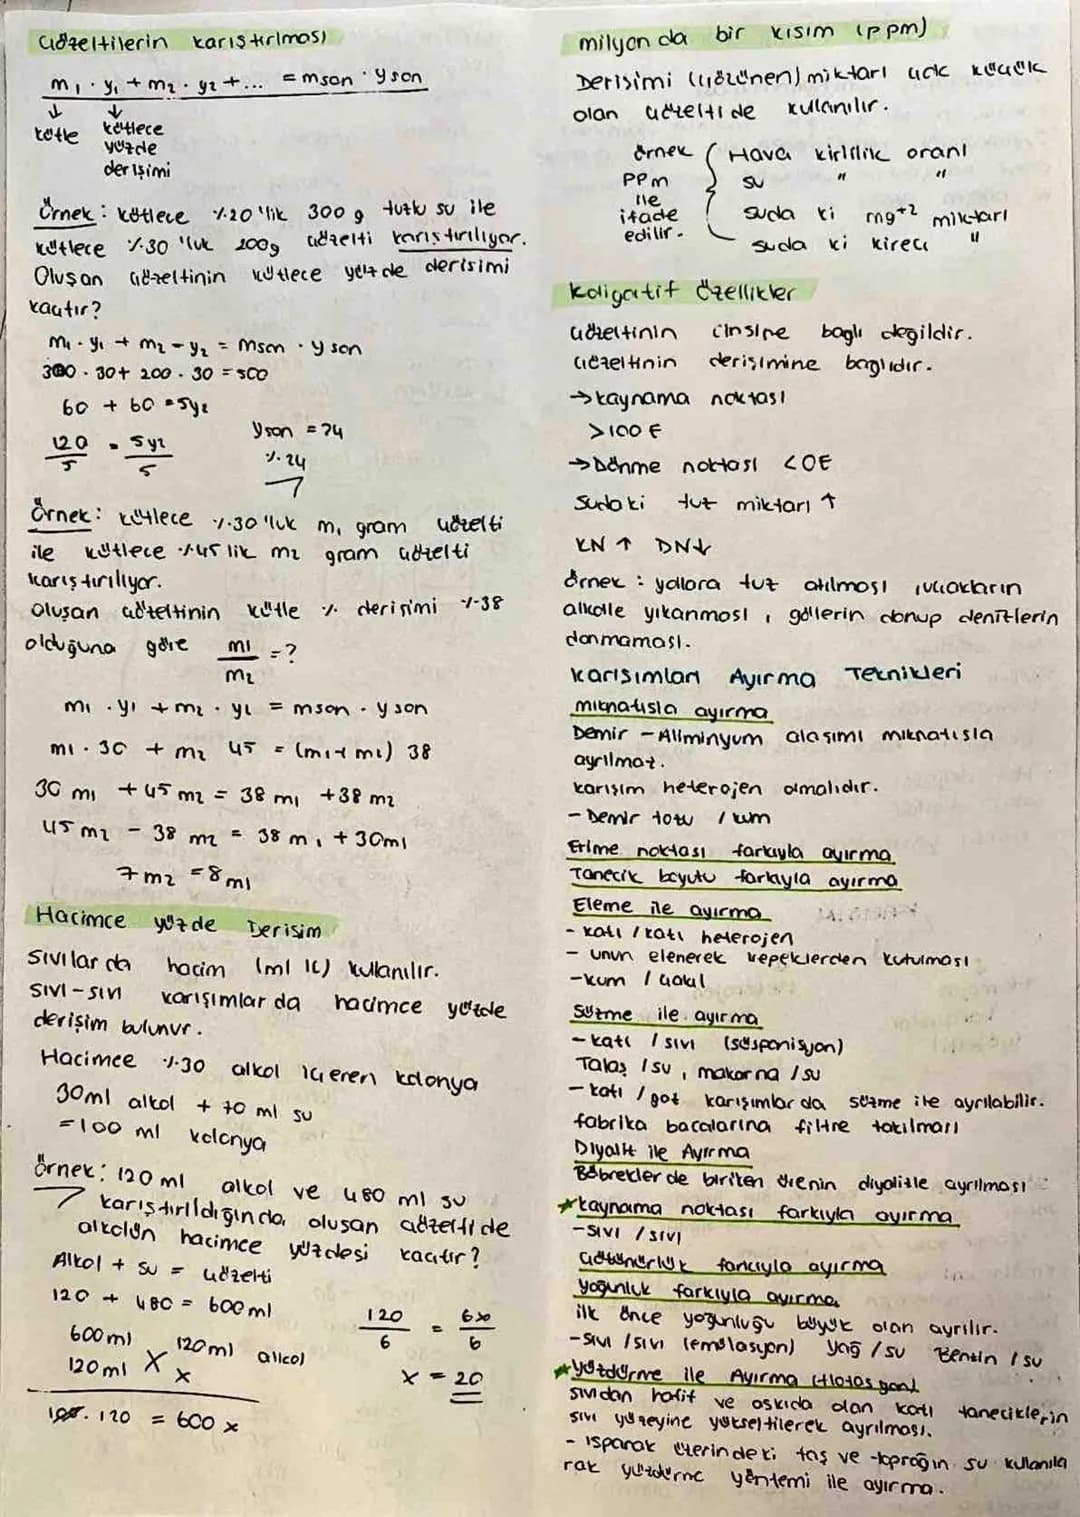 Çözeltilerin karıştırılması
m₁ · y₁ + m₂ · y₂ + ... = mson · yson
↓ ↓
kütle kütlece
yüzde
derişimi
Örnek: kütlece %20'lik 300 g tuzlu su ile
kütlece %30'luk 200g çözelti karıştırılıyor.
Oluşan çözeltinin kütlece yüzde derişimi
kaçtır?
m₁ · y₁ + m₂ - y₂ = mson · yson
300 · 30 + 200 · 30 = 500
60 + 60 = 5y₂
120/5 = 5y₂/5
yson = 24
%24
Örnek: kütlece %30'luk m₁ gram çözelti
ile kütlece %45 lik m₂ gram çözelti
karıştırılıyor.
Oluşan çözeltinin kütle % derişimi %38
olduğuna göre m₁/m₂ = ?
m₁ · y₁ + m₂ · y₂ = mson · yson
m₁ · 30 + m₂ 45 = (m₁ + m₂) 38
30 m₁ + 45 m₂ = 38 m₁ + 38 m₂
45 m₂ - 38 m₂ = 38 m₁ + 30m₁
7m₂ = 8m₁
Hacimce yüzde Derişim
Sıvılarda hacim (ml lt) kullanılır.
Sıvı-sıvı karışımlarda hacimce yüzde
derişim bulunur.
Hacimce %30 alkol içeren kolonya
30ml alkol + 70 ml su
= 100 ml kolonya
Örnek: 120 ml alkol ve 480 ml su
karıştırıldığında oluşan çözeltide
alkolün hacimce yüzdesi kaçtır?
Alkol + su = çözelti
120 + 480 = 600ml
600ml 120ml alkol
120ml X x
100. 120 = 600 x
120/6 = 6x/6
x = 20
milyonda bir kısım (ppm)
Derişimi (çözünen) miktarı çok küçük
olan çözeltide kullanılır.
örnek ppm ile ifade edilir.
Hava kirlilik oranı
su " "
suda ki mg⁺² miktarı
suda ki kireç "
Koligatif Özellikler
çözeltinin cinsine bağlı değildir.
çözeltinin derişimine bağlıdır.
→ kaynama noktası
>100 E
→ Donma noktası <0E
Sudaki tuz miktarı ↑
KN ↑ DN↓
örnek : yollara tuz atılması, uçakların
alkolle yıkanması, göllerin donup denizlerin
donmaması.
Karışımları Ayırma Teknikleri
mıknatısla ayırma
Demir - Aliminyum alaşımı mıknatısla
ayrılmaz.
karışım heterojen olmalıdır.
- Demir tozu / kum
Erime noktası farkıyla ayırma
Tanecik boyutu farkıyla ayırma
Eleme ile ayırma
- katı / katı heterojen
- unun elenerek kepeklerden kutulması
- kum / çakıl
Süzme ile ayırma
- katı / sıvı (süspanisyon)
Talaş / su, makarna / su
- katı / gaz karışımlarda süzme ile ayrılabilir.
fabrika bacalarına filtre takılması
Diyaliz ile Ayırma
Böbreklerde biriken ürenin diyalizle ayrılması
★ kaynama noktası farkıyla ayırma
- sıvı / sıvı
çözünürlük farkıyla ayırma
yoğunluk farkıyla ayırma
ilk önce yoğunluğu büyük olan ayrılır.
- sıvı / sıvı (emülasyon) yağ / su Benzin / su
★ yüzdürme ile Ayırma (flotasyon)
sıvıdan hafif ve askıda olan katı taneciklerin
sıvı yüzeyine yükseltilerek ayrılması.
- Ispanak üzerindeki taş ve toprağın su kullanıla
rak yüzdürme yöntemi ile ayırma.